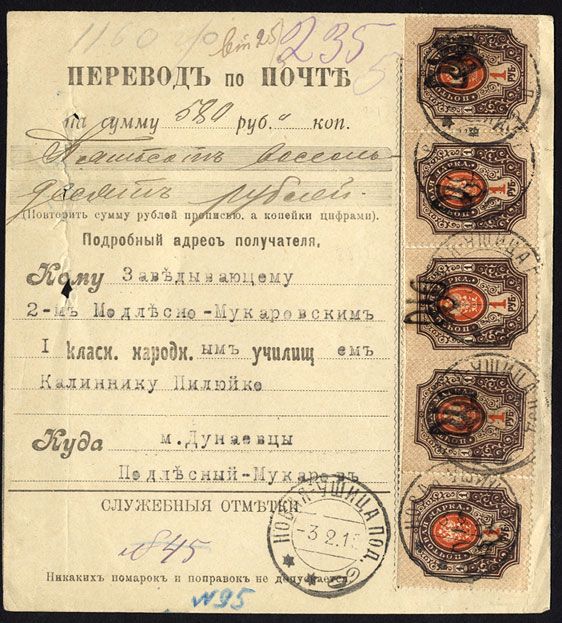 1160
235
5
ПЕРЕВОДЪ по ПОЧТѢ
на сумму 580 руб. " коп.
Пятьсотъ восемь-
десятъ рублей.
(Повторить сумму рублей прописью, а копейки цифрами).
Подробный адресъ получателя,
Кому Завѣдывающему
2-мъ Подлѣсно-Мукаровскимъ
I класн. народн.ымъ училищ емъ
Калиннику Пилюйко
Куда м.Дунаевцы
Подлѣсный-Мукаровъ
СЛУЖЕБНЫЯ ОТМѢТКИ
№45
Никакихъ помарокъ и поправокъ не допускается.
№95
НОВАЯ-УШИЦА ПОД.
-3.2.1
1 РУБ
1 РУБ
1 РУБ
1 РУБ